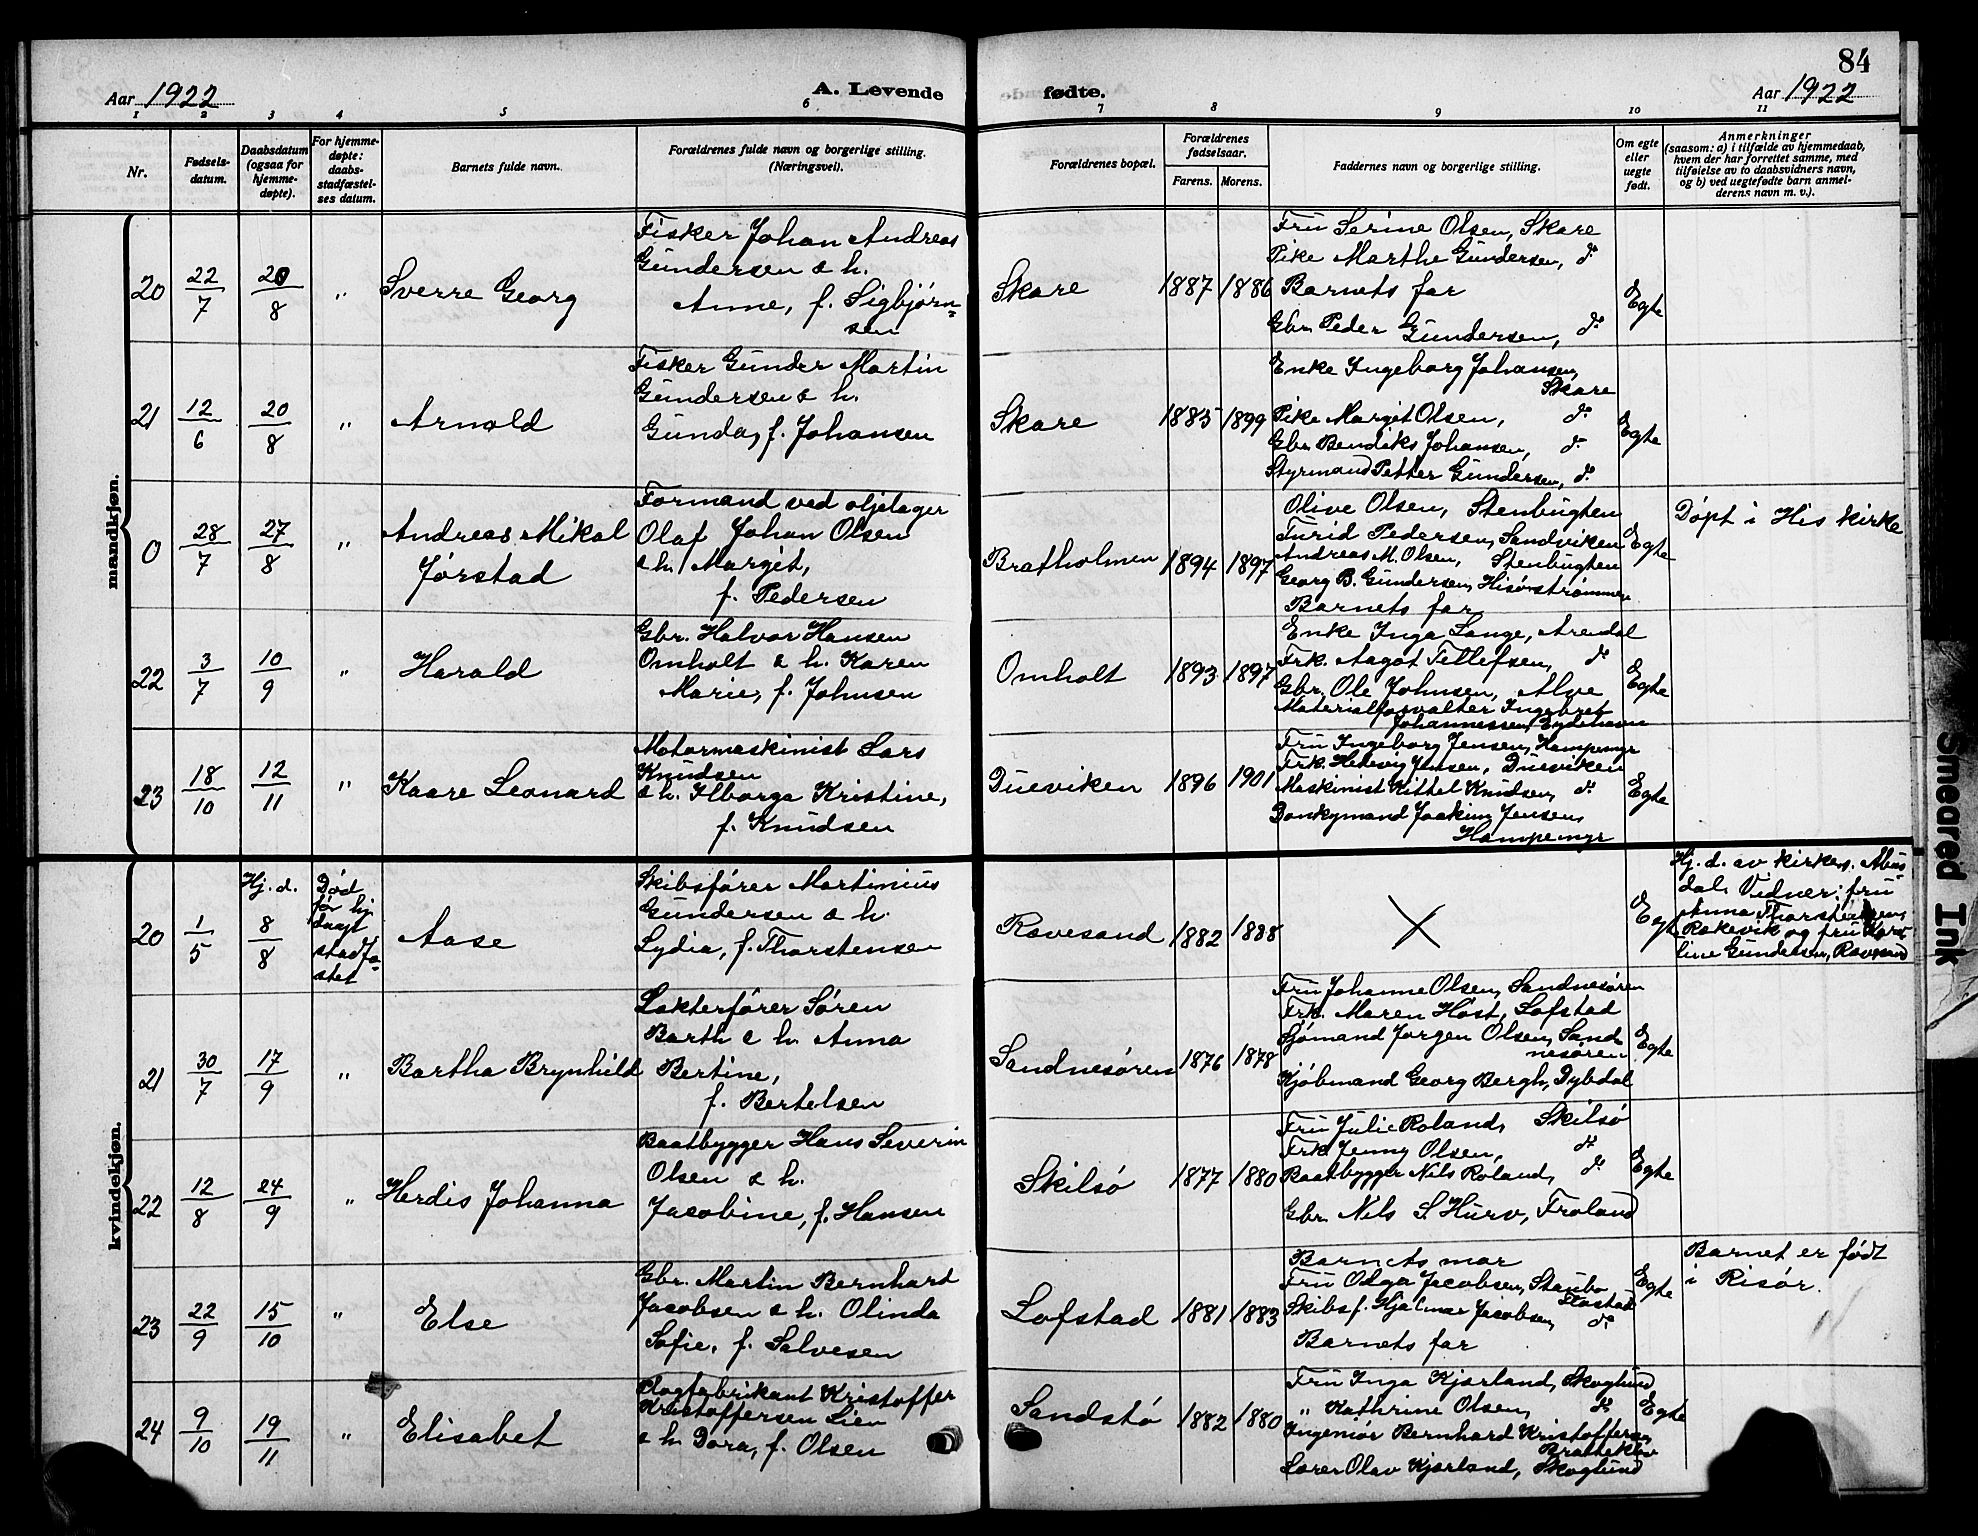 84
Aar 1922
A. Levende fødte.
Aar 1922
1 2 3 4 5 6 7 8 9 10 11
Nr.
Fødsels-
datum.
Daabsdatum
(ogsaa for
hjemme-
døpte).
For hjemme-
døpte:
daabs-
stadfæstel-
ses datum.
Barnets fulde navn.
Forældrenes fulde navn og borgerlige stilling.
(Næringsvei).
Forældrenes bopæl.
Forældrenes
fødselsaar.
Farens. Morens.
Faddernes navn og borgerlige stilling.
Om egte
eller
uegte
født.
Anmerkninger
(saasom: a) i tilfælde av hjemmedaab,
hvem der har forrettet samme, med
tilføielse av to daabsvidners navn,
og b) ved uegtefødte barn anmel-
derens navn m. v.).
mandkjøn.
20
22/7
20/8
"
Sverre Georg
Fisker Johan Andreas
Gundersen & h.
Anne, f. Sigbjørn-
sen
Skare
1887 1886
Fru Serine Olsen, Skare
Pike Marthe Gundersen, do
Barnets far
Gbr. Peder Gundersen, do
Egte
21
12/6
20/8
"
Arnold
Fisker Gunder Martin
Gundersen & h.
Gunda, f. Johansen
Skare
1885 1899
Enke Ingeborg Johansen,
Skare
Pike Margit Olsen, do
Gbr. Bendiks Johansen, do
Styrmand Petter Gundersen, do
Egte
0
28/7
27/8
"
Andreas Mikal
Jørstad
Formand ved oljelager
Olaf Johan Olsen
& h. Margit,
f. Pedersen
Bratholmen
1894 1897
Olive Olsen, Stenbugten
Turid Pedersen, Sandviken
Andreas M. Olsen, Stenbugten
Georg B. Gundersen, Hisønstrømmen
Barnets far
Egte
Døpt i His kirke
22
3/7
10/9
"
Harald
Gbr. Halvor Hansen
Omholt & h. Karen
Marie, f. Johnsen
Omholt
1893 1897
Enke Inga Lange, Arendal
Frk. Aagot Tellefsen, do
Gbr. Ole Johnsen, Alve
Materialforvalter Ingebret
Johannessen, Eydehavn
Egte
23
18/10
12/11
"
Kaare Leonard
Motormaskinist Lars
Knudsen
& h. Ilborga Kristine,
f. Knudsen
Dueviken
1896 1901
Fru Ingeborg Jensen, Hampemyr
Frk. Hedvig Jensen, Dueviken
Maskinist Kittel Knudsen, do
Donkymand Joakim Jensen,
Hampemyr
Egte
kvindekjøn.
20
1/5
Hj. d.
8/8
Død
før hj.
daapt
stadfæ-
stet
Aase
Skibsfører Martinius
Gundersen & h.
Lydia, f. Thorstensen
Ravesand
1882 1888
X
Egte
Hj. d. av kirkes.
dal. Vidner: fru
Anna Thorstensen,
Rakevik og fru Karo-
line Gundersen, Ravesand
21
30/7
17/9
"
Bartha Brynhild
Lekterfører Søren
Barth & h. Anna
Bertine,
f. Bertelsen
Sandnesøren
1876 1878
Fru Johanne Olsen, Sandnesøren
Frk. Maren Høst, Lofstad
Sjømand Jørgen Olsen, Sand-
nesøren
Kjøbmand Georg Bergh, Dybdal
Egte
22
12/8
24/9
"
Herdis Johanna
Baatbygger Hans Severin
Olsen & h.
Jacobine, f. Hansen
Skilsø
1877 1880
Fru Julie Roland, Skilsø
Frk. Jenny Olsen, do
Baatbygger Nils Roland, do
Gbr. Nils S. Hurv, Froland
Egte
23
22/9
15/10
"
Else
Gbr. Martin Bernhard
Jacobsen & h. Olinda
Sofie, f. Salvesen
Lofstad
1881 1883
Barnets mor
Fru Olga Jacobsen, Staubo
Flostad
Skibsf. Hjalmar Jacobsen, do
Barnets far
Egte
Barnet er født
i Risør.
24
9/10
19/11
"
Elisabet
Kristoffer
Kristoffersen Lien
& h. Dora, f. Olsen
Sandstø
1882 1880
Fru Inga Kjørland, Skoglund
" Kathrine Olsen, do
Ingeniør Bernhard Kristoffersen,
Bratteklev
Lærer Olav Kjørland, Skoglund
Egte
Smeared Ink